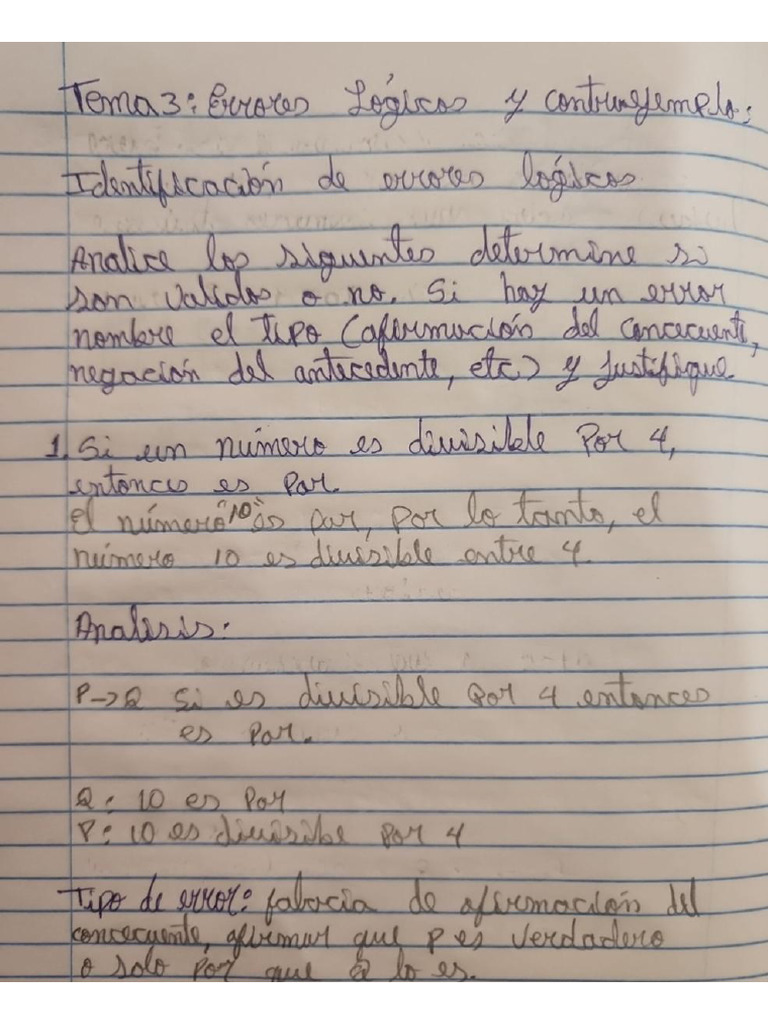 Tema 3: Errores Lógicos y contraejemplo:
Identificación de errores lógicos
Analice los siguientes determine si
son validos o no. Si hay un error
nombre el tipo (afirmación del concecuente,
negación del antecedente, etc) y justifique.
1. Si un número es divisible Por 4,
entonces es Par.
el número "10" es par, por lo tanto, el
número 10 es divisible entre 4.
Analisis:
P→Q Si es divisible por 4 entonces
es Par.
Q: 10 es Par
P: 10 es divisible por 4
Tipo de error: falacia de afirmación del
concecuente, afirmar que P es verdadero
o solo por que Q lo es.